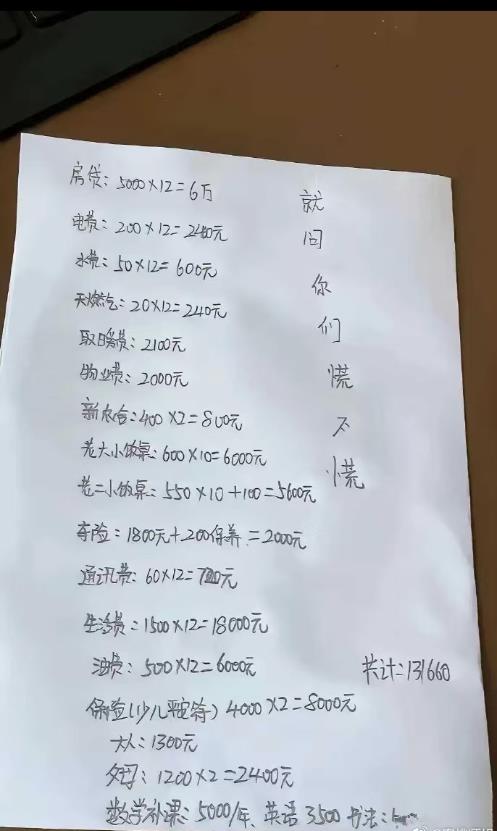 房贷：5000×12=6万
电费：200×12=2400元
水费：50×12=600元
天燃气：20×12=240元
取日暖费：2100元
物业费：2000元
新农合：400×2=800元
老大小饭桌：600×10=6000元
老二小饭桌：550×10+100=5600元
车险：1800元+200保养=2000元
通讯费：60×12=720元
生活费：1500×12=18000元
油费：500×12=6000元
保险(少儿平安符) 4000×2=8000元
大人：1300元
父母：1200×2=2400元
数学补课：5000/年、英语3500 书法：
就问你们慌不慌
共计：131660